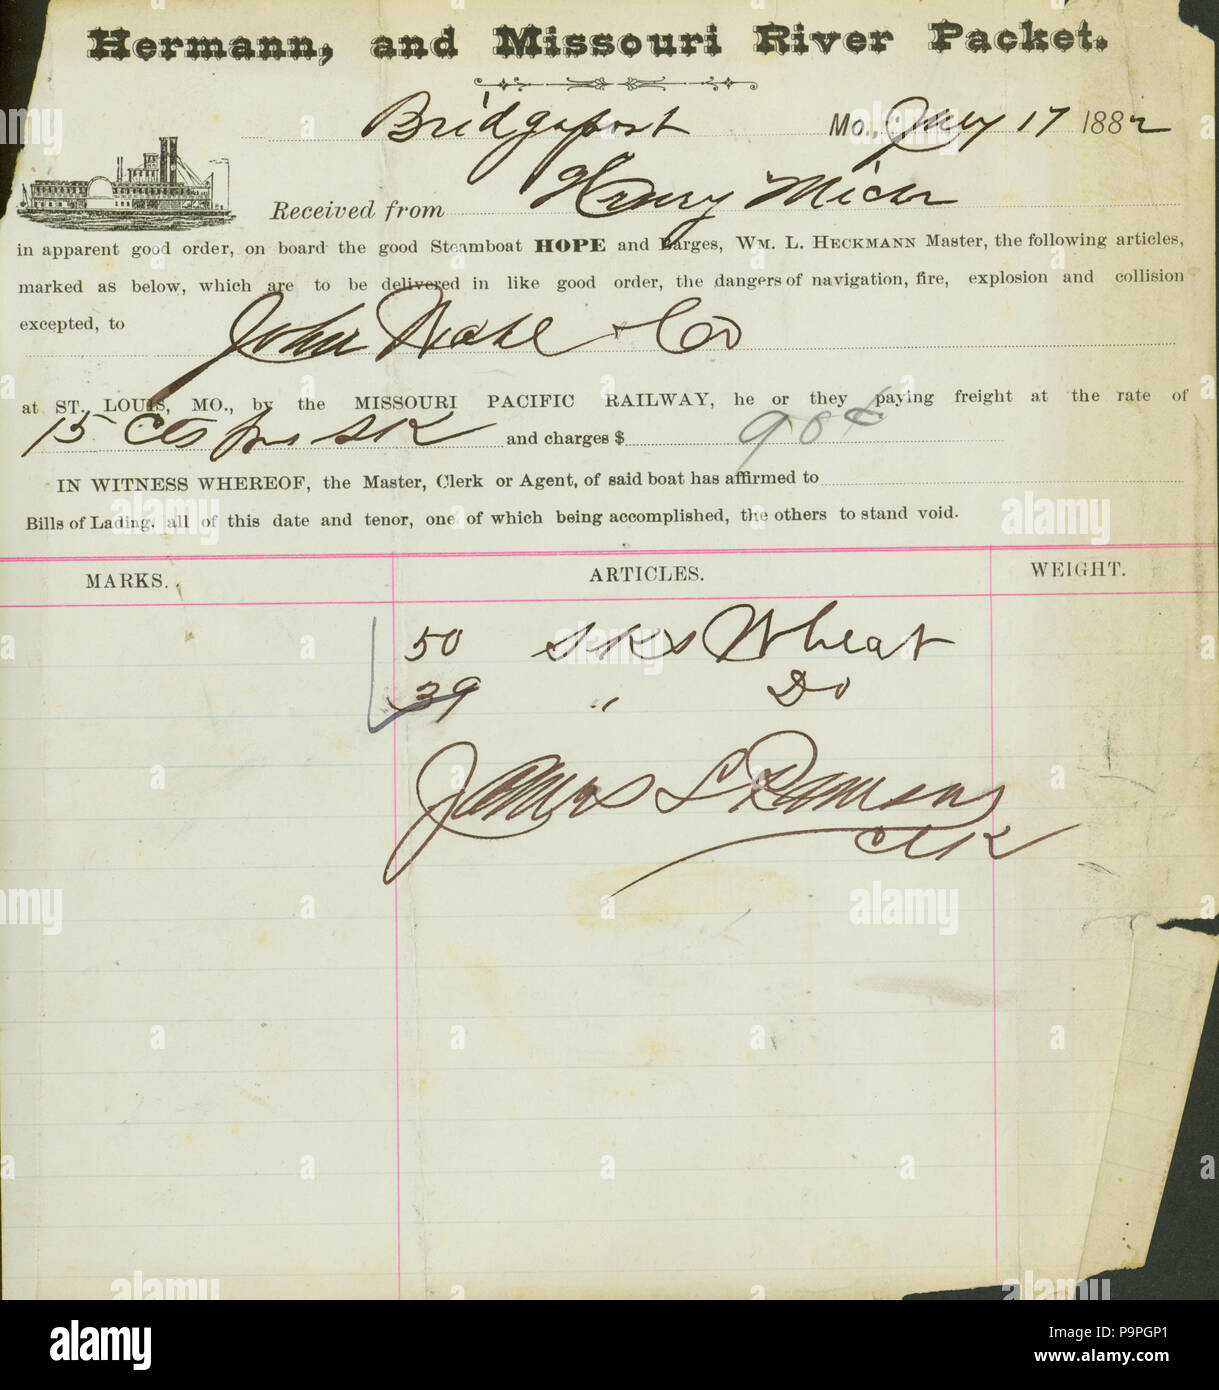 Hermann, and Missouri River Packet.
Bridgeport Mo., July 17 1882
Received from Henry
in apparent good order, on board the good Steamboat HOPE and Barges, WM. L. HECKMANN Master, the following articles,
marked as below, which are to be delivered in like good order, the dangers of navigation, fire, explosion and collision
excepted, to John Wahl & Co
at ST. LOUIS, MO., by the MISSOURI PACIFIC RAILWAY, he or they paying freight at the rate of
15 cts per SK and charges $ 90¢
IN WITNESS WHEREOF, the Master, Clerk or Agent, of said boat has affirmed to
Bills of Lading, all of this date and tenor, one of which being accomplished, the others to stand void.
MARKS. ARTICLES. WEIGHT.
50 SKs Wheat
39 " Do
James L
Clk
alamy
Image ID: P9PGP1
www.alamy.com